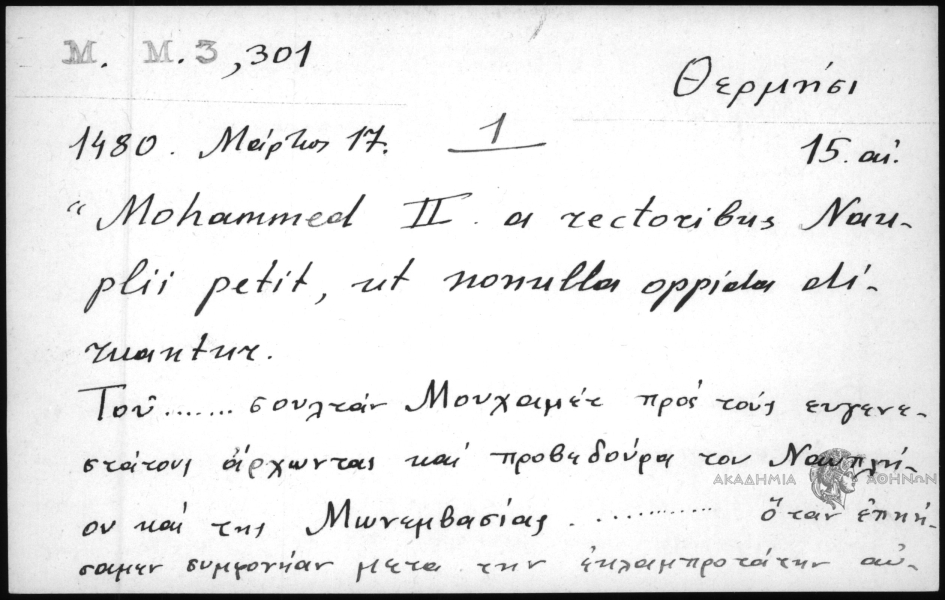 M. M.3, 301
Θερμήσι
1480. Μάρτιος 17. 1 15. αἰ.
"Mohammed II. a rectoribus Nau-
plii petit, ut nonulla oppida di-
ruantur.
Τοῦ ....... σουλτάν Μουχαμέτ πρός τούς ευγενε-
στάτους άρχωντας καί προβεδούρα του Ναυπλή-
ου καί της Μωνεμβασίας ............ ὅταν ἐπηή-
σαμεν συμφονήαν μετα την ἐκλαμπροτάτην αὐ-
ΑΚΑΔΗΜΙΑ ΑΘΗΝΩΝ